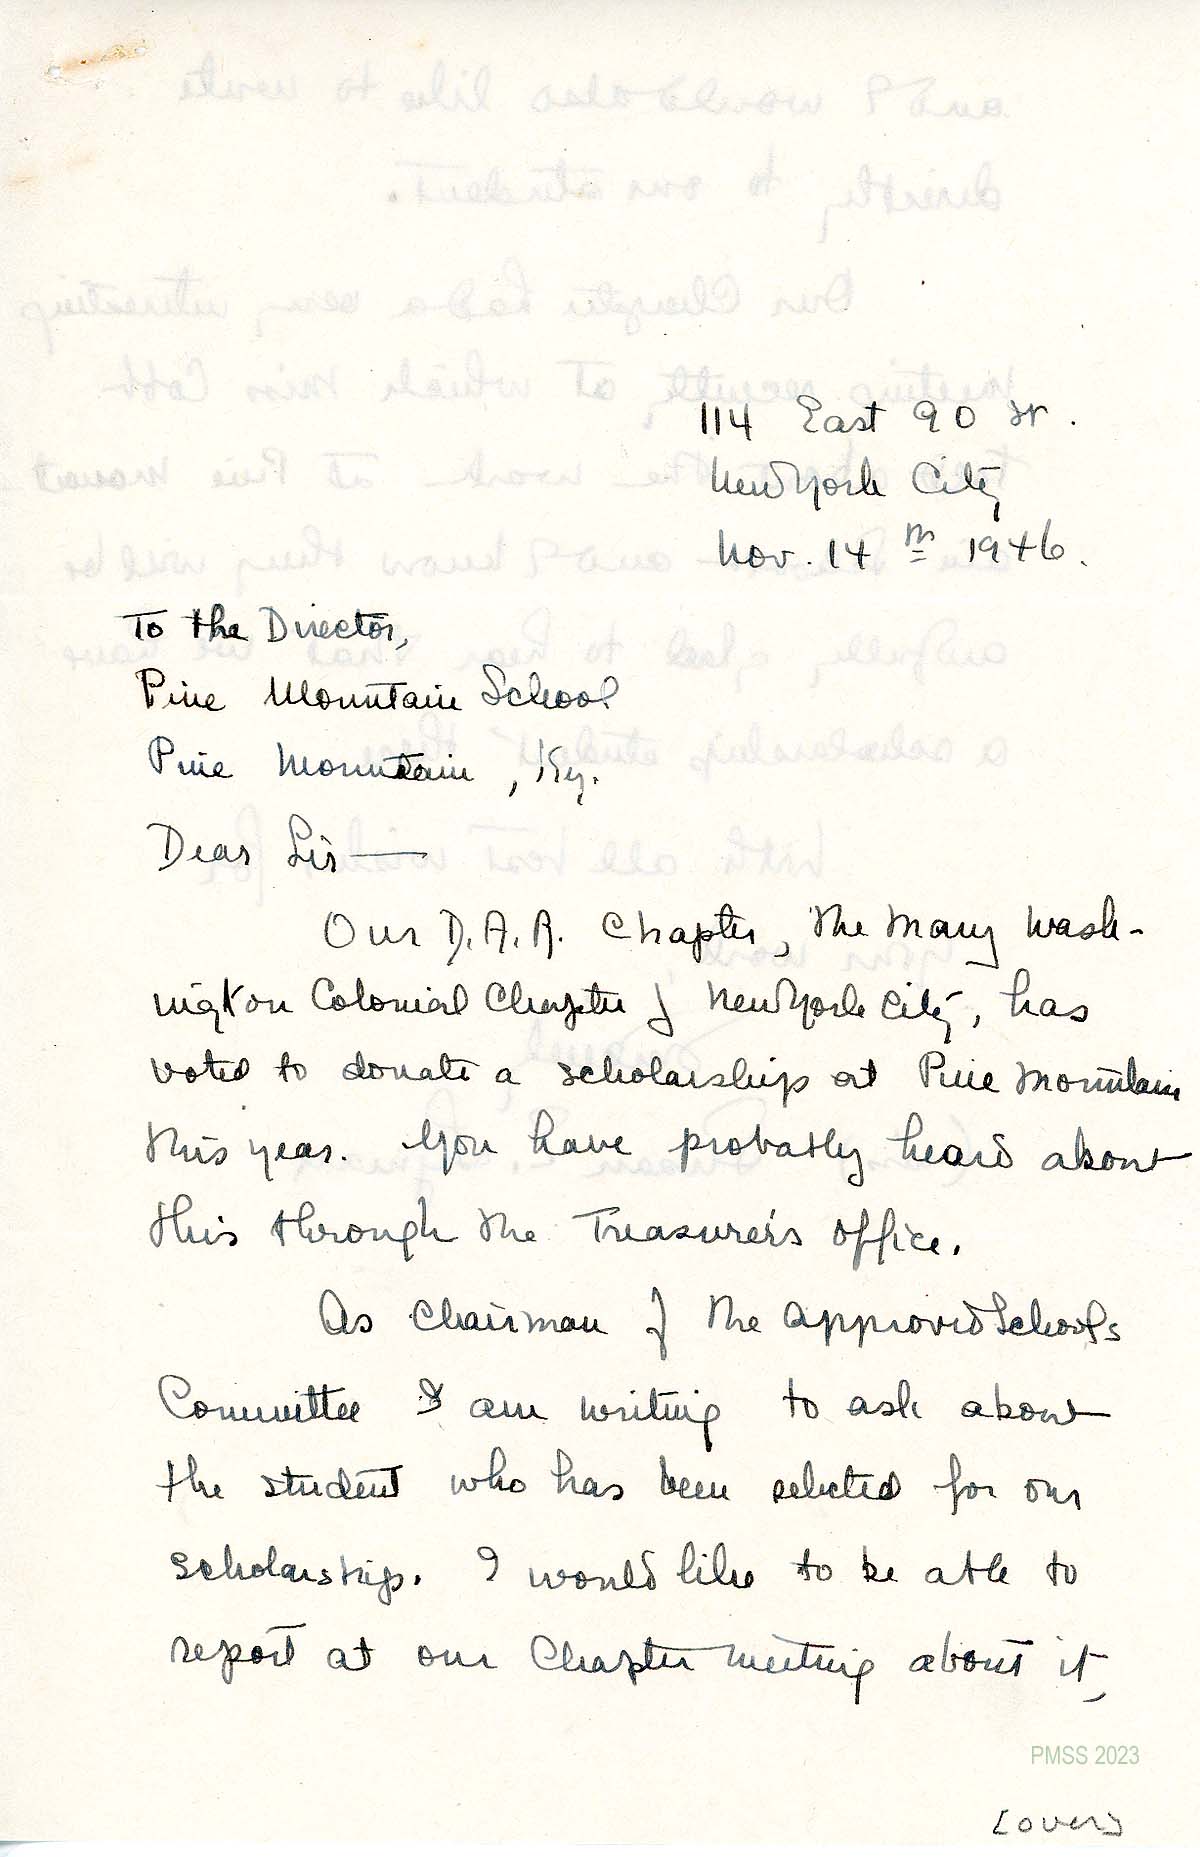 114 East 90 St.
New York City
Nov. 14th 1946.
To the Director,
Pine Mountain School
Pine Mountain, Ky.
Dear Sir—
Our D.A.R. Chapter, the Mary Wash-
ington Colonial Chapter of New York City, has
voted to donate a scholarship at Pine Mountain
this year. You have probably heard about
this through the Treasurer's office.
As Chairman of the Approved Schools
Committee I am writing to ask about
the student who has been selected for our
scholarship. I would like to be able to
report at our Chapter meeting about it,
PMSS 2023
[over]